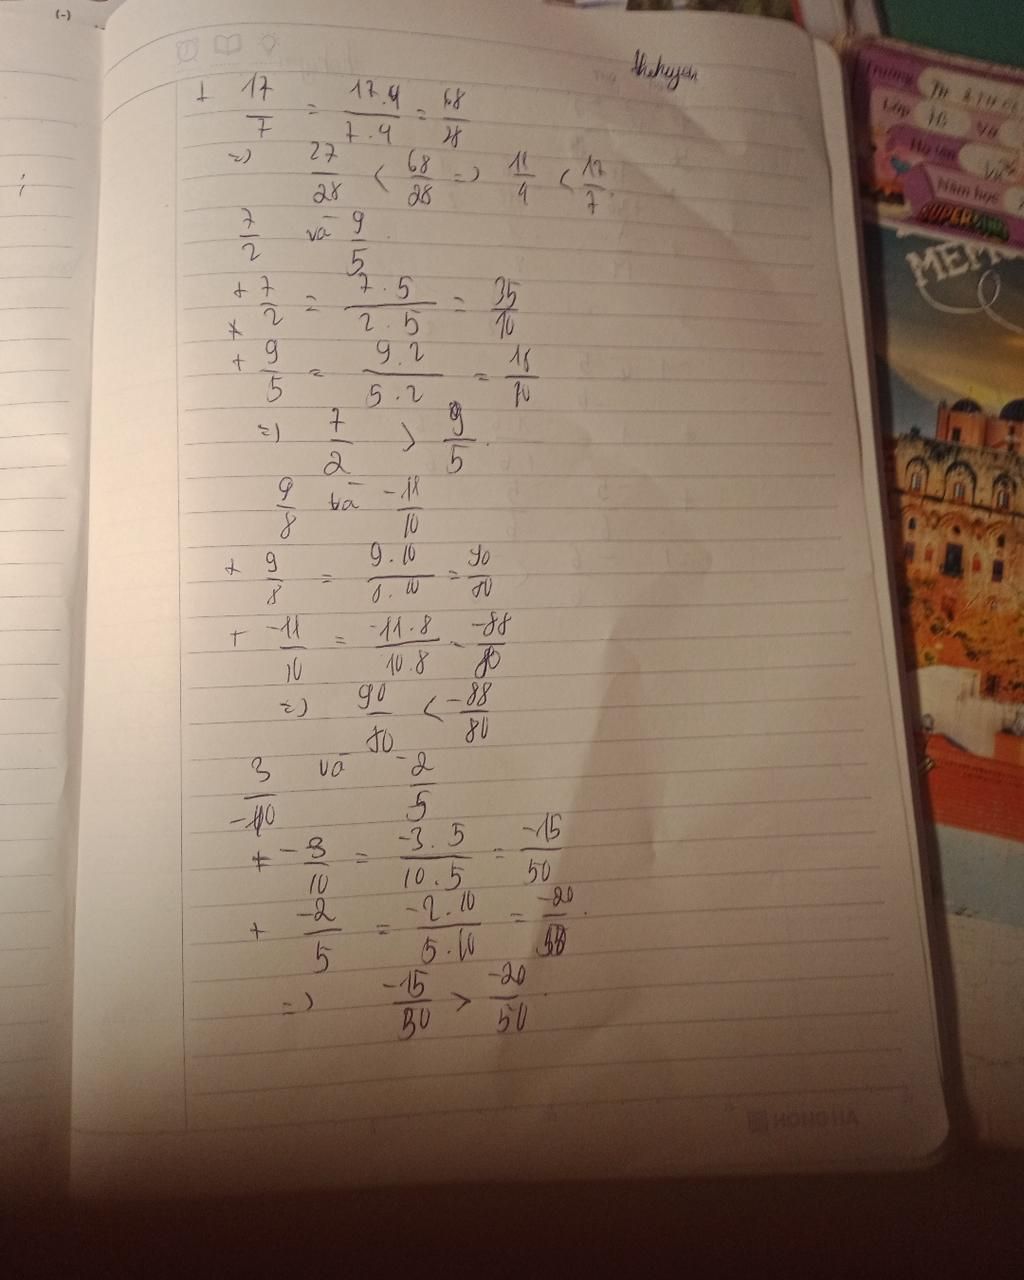 (-)
+ 17/7 = 17.4/7.4 = 68/28
=) 27/28 < 68/28 =) 11/4 < 17/7.
7/2 và 9/5.
+ 7/2 = 7.5/2.5 = 35/10
+
+ 9/5 = 9.2/5.2 = 18/10
=) 7/2 > 9/5.
9/8 và -11/10
+ 9/8 = 9.10/8.10 = 90/80
+ -11/10 = -11.8/10.8 = -88/80
=) 90/80 < -88/80
3/-10 và -2/5
+ -3/10 = -3.5/10.5 = -15/50
+ -2/5 = -2.10/5.10 = -20/50.
=) -15/50 > -20/50.
HONG HA
Trường
TH & TH CS
Lớp
Vở
Họ tên
Năm học
SUPER
MEM